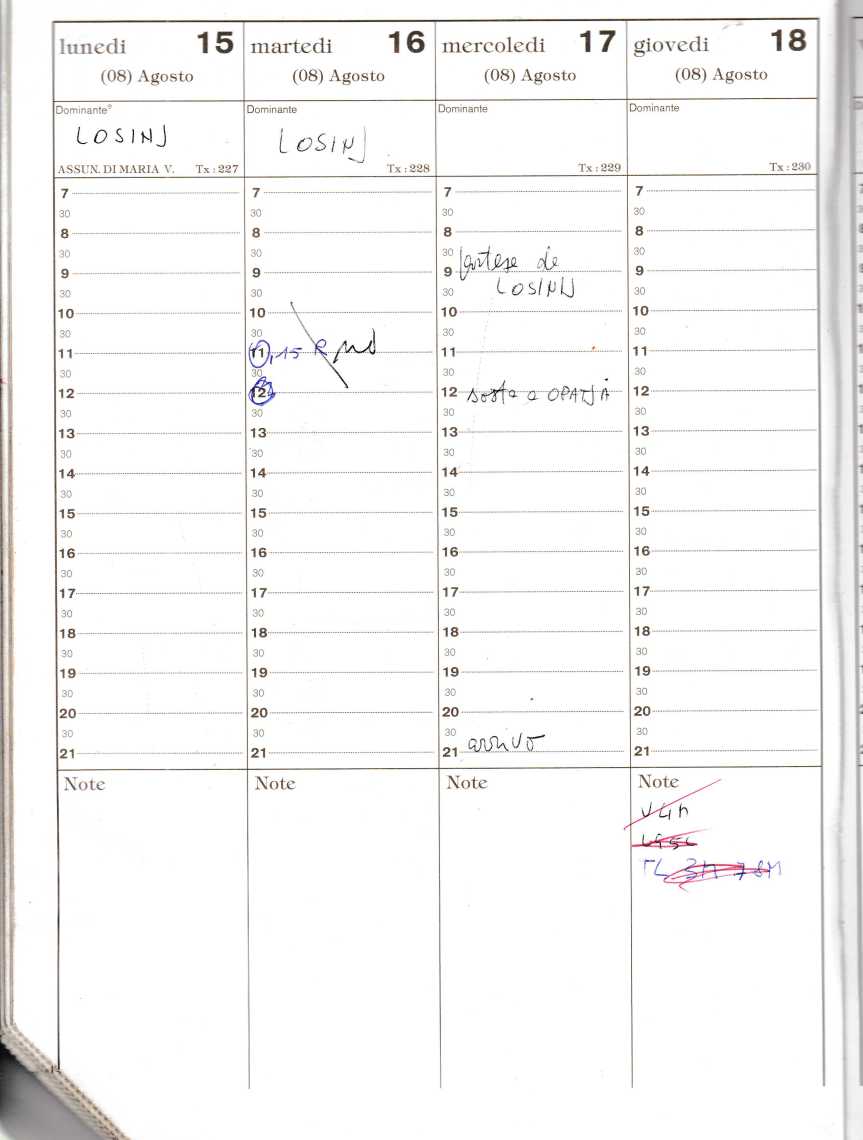 lunedi 15
(08) Agosto
Dominante°
LOSINJ
ASSUN. DI MARIA V. Tx : 227
7
30
8
30
9
30
10
30
11
30
12
30
13
30
14
30
15
30
16
30
17
30
18
30
19
30
20
30
21
Note
martedi 16
(08) Agosto
Dominante
LOSINJ
Tx : 228
7
30
8
30
9
30
10
30
11,15 R
30
12
30
13
30
14
30
15
30
16
30
17
30
18
30
19
30
20
30
21
Note
mercoledi 17
(08) Agosto
Dominante
Tx : 229
7
30
8
30
9 da
30 LOSINJ
10
30
11
30
12 sosta a OPATJA
30
13
30
14
30
15
30
16
30
17
30
18
30
19
30
20
30
21 arrivo
Note
giovedi 18
(08) Agosto
Dominante
Tx : 230
7
30
8
30
9
30
10
30
11
30
12
30
13
30
14
30
15
30
16
30
17
30
18
30
19
30
20
30
21
Note
TL